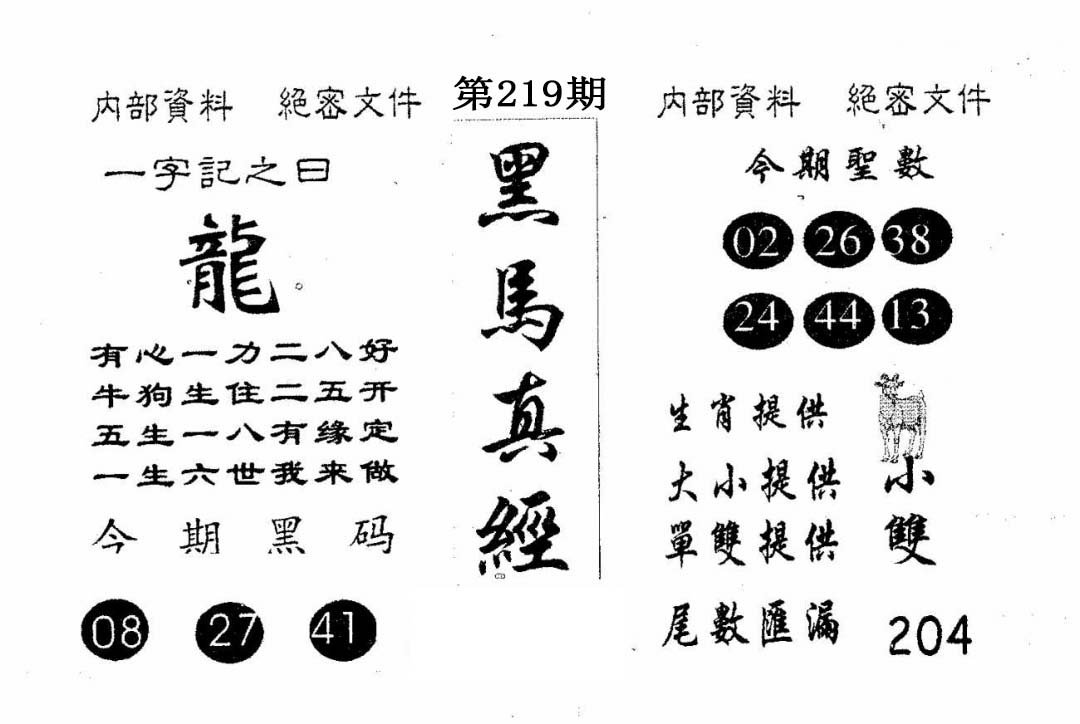 内部資料 絕密文件
一字記之曰
龍
有心一力二八好
牛狗生住二五开
五生一八有缘定
一生六世我来做
今期黑码
08 27 41
第219期
黑馬真經
内部資料 絕密文件
今期聖數
02 26 38
24 44 13
生肖提供
大小提供 小
單雙提供 雙
尾數匯漏 204